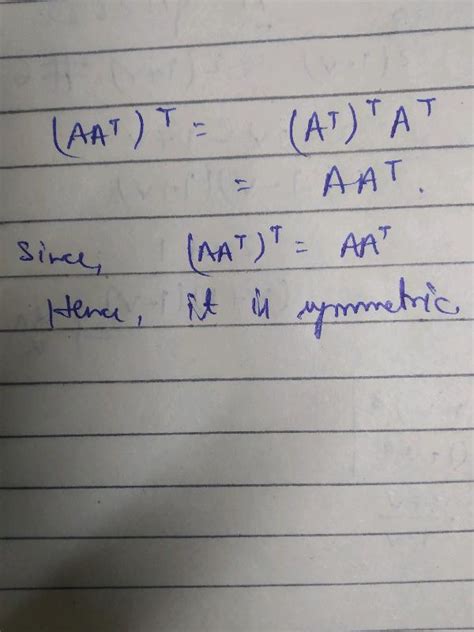 (AAᵀ)ᵀ = (Aᵀ)ᵀAᵀ
= AAᵀ.
Since, (AAᵀ)ᵀ = AAᵀ
Hence, it is symmetric.